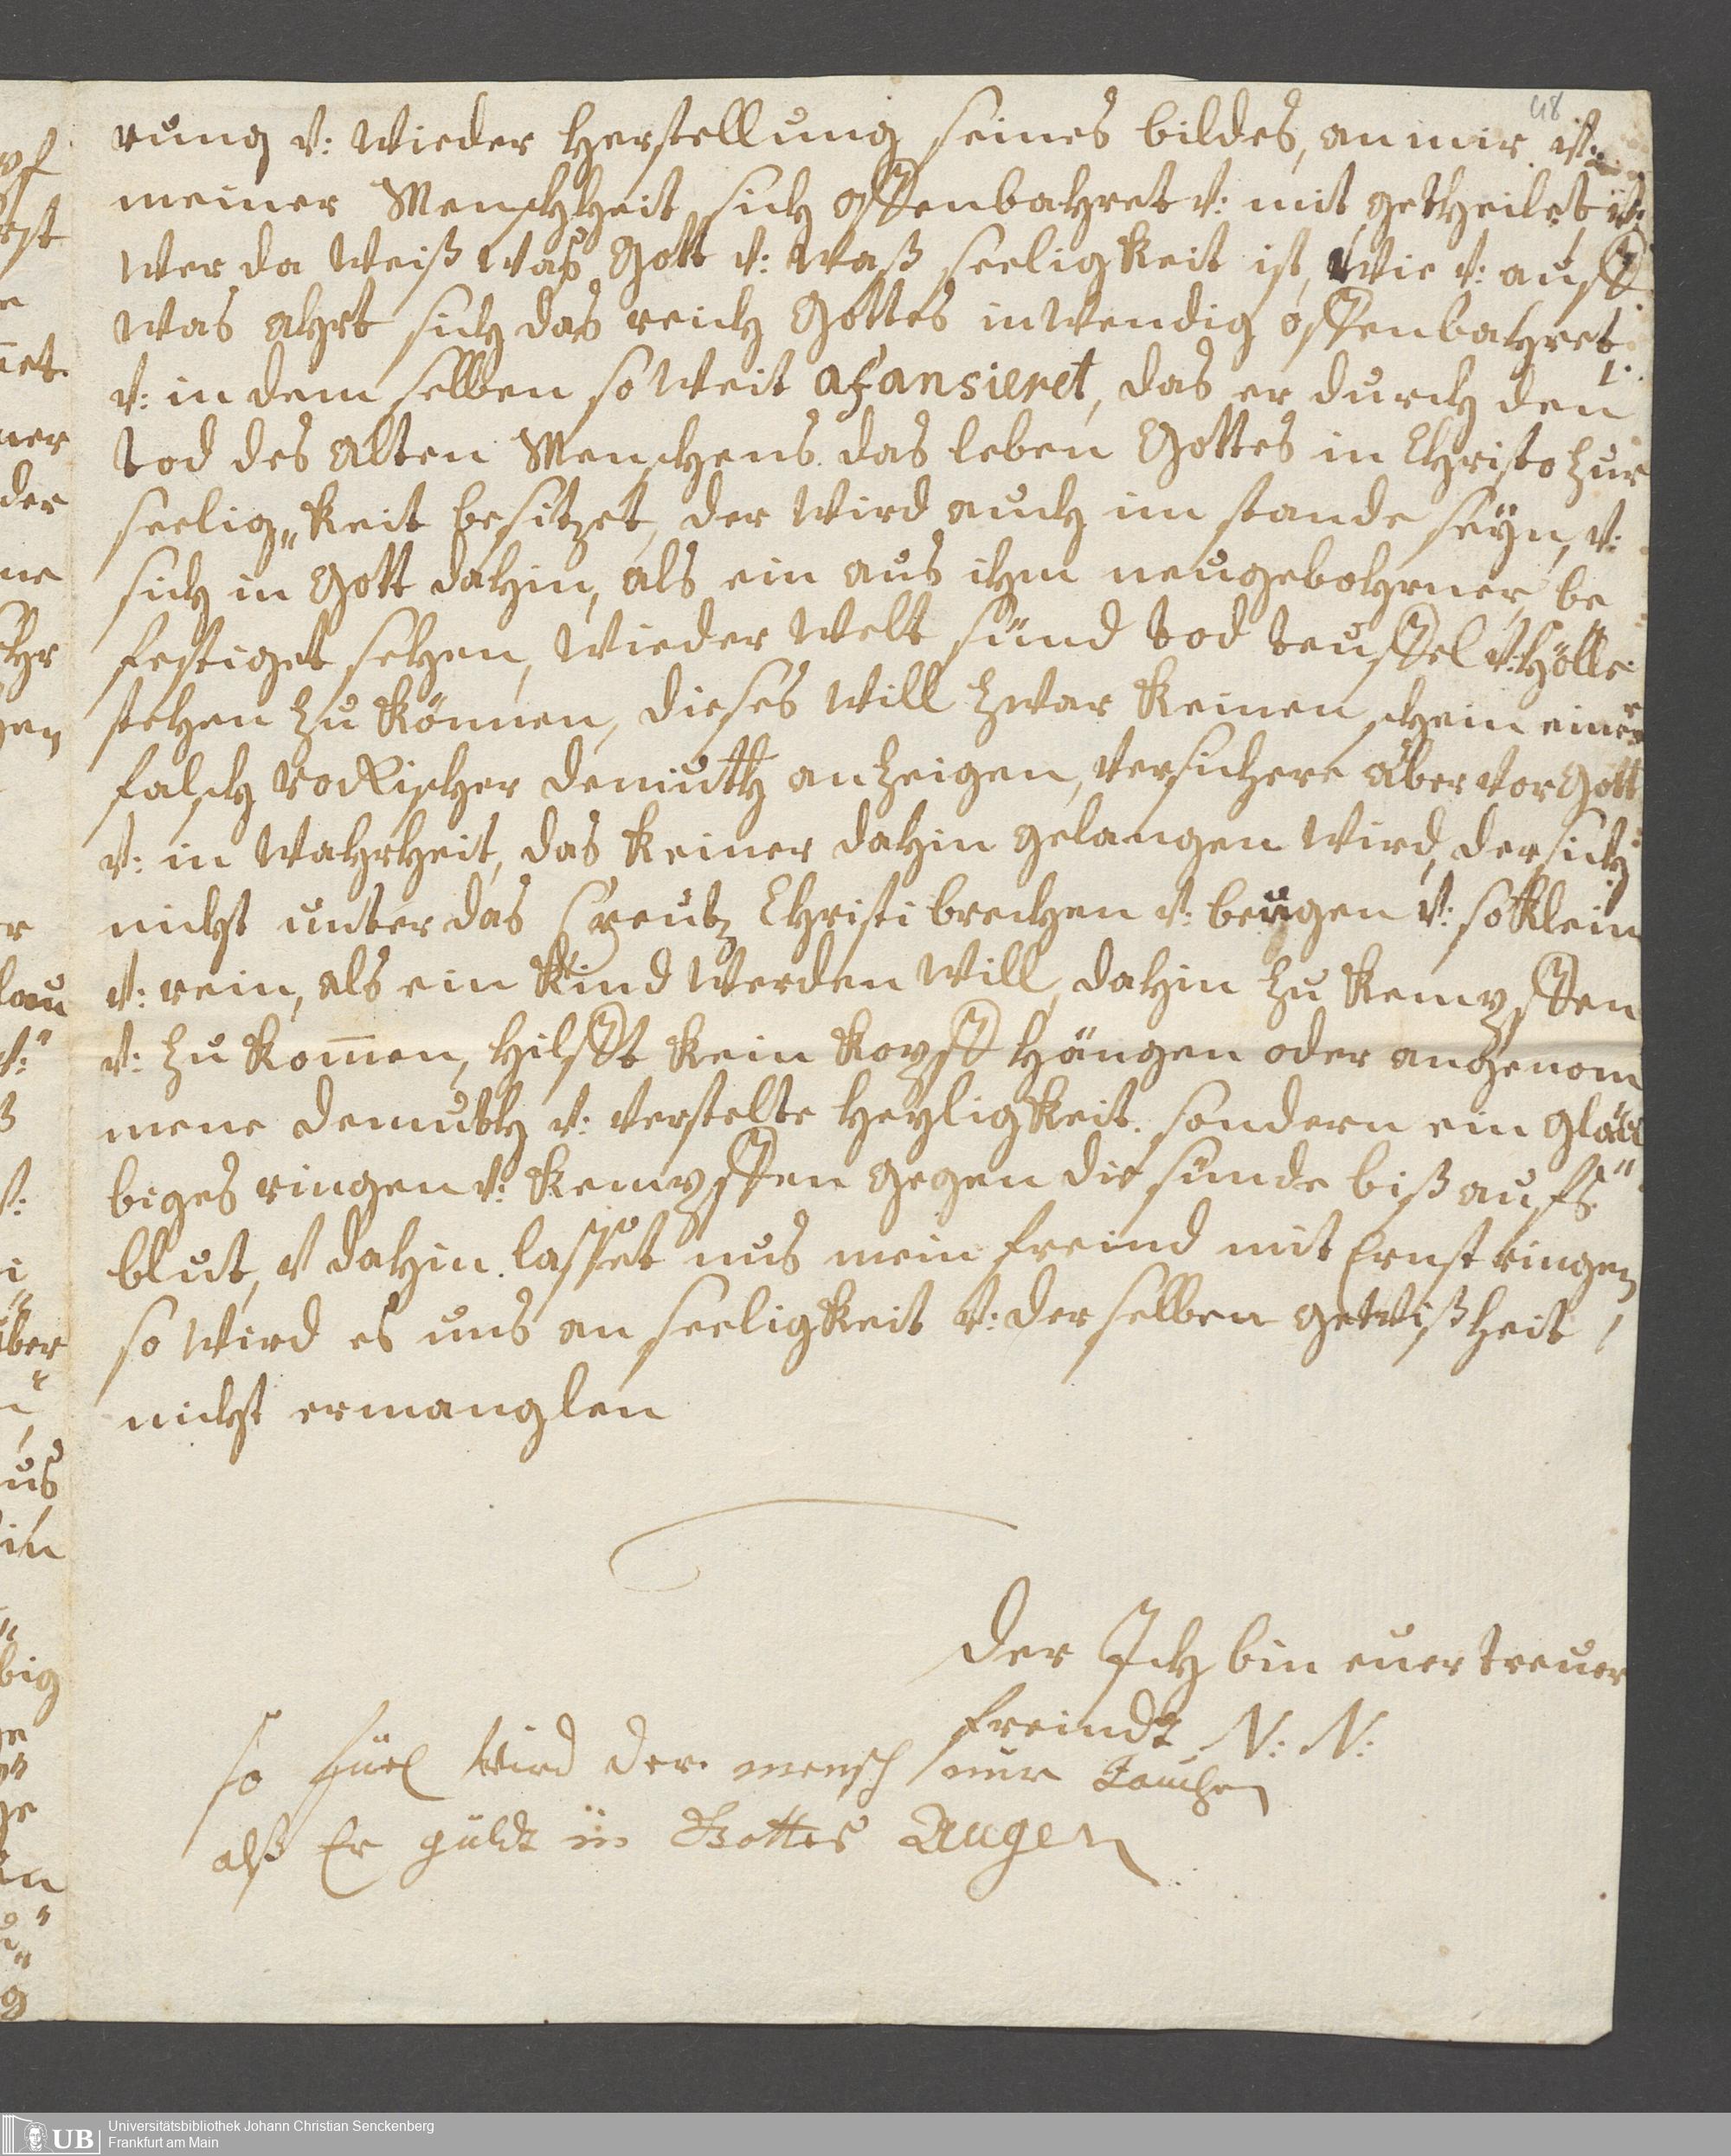 48
rung v: wieder herstellung seines bildes, an mir v:
meiner Menschheit sich offenbahret v: mit getheilet v:
wer da weiß was Gott v: waß seeligkeit ist, wie v: auff
was ahrt sich das reich Gottes inwendig offenbahret
v: in dem selben so weit afansieret, das er durch den
tod des alten Menschens das leben Gottes in Christo zur
seelig„keit besitzet, der wird auch im stande seyn, v:
sich in Gott dahin, als ein aus ihm neugebohrner, be
festiget sehen, wieder welt sünd tod teuffel v: hölle
stehen zu können, dieses will zwar keinen schein einer
falsch demuth anzeigen, versichere aber vor Gott
v: in wahrheit, das keiner dahin gelangen wird, der sich
nicht unter das Creutz Christi brechen v: beugen v: so klein
v: rein, als ein kind werden will, dahin zu kempffen
v: zu kom̄en, hilfft kein kopff hängen oder angenom
mene demuth v: verstelte heyligkeit. sondern ein gläu
biges ringen v: kempffen gegen die sünde biß aufs
blut, v dahin lasset uns mein freind mit Ernst ringen
so wird es uns an seeligkeit v: der selben gewißheit
nicht ermanglen
der Ich bin euer treuer
freindt N: N:
so fiel wird der mensch nur tauchen
alß Er güldt in Gottes Augen
UB
Universitätsbibliothek Johann Christian Senckenberg
Frankfurt am Main